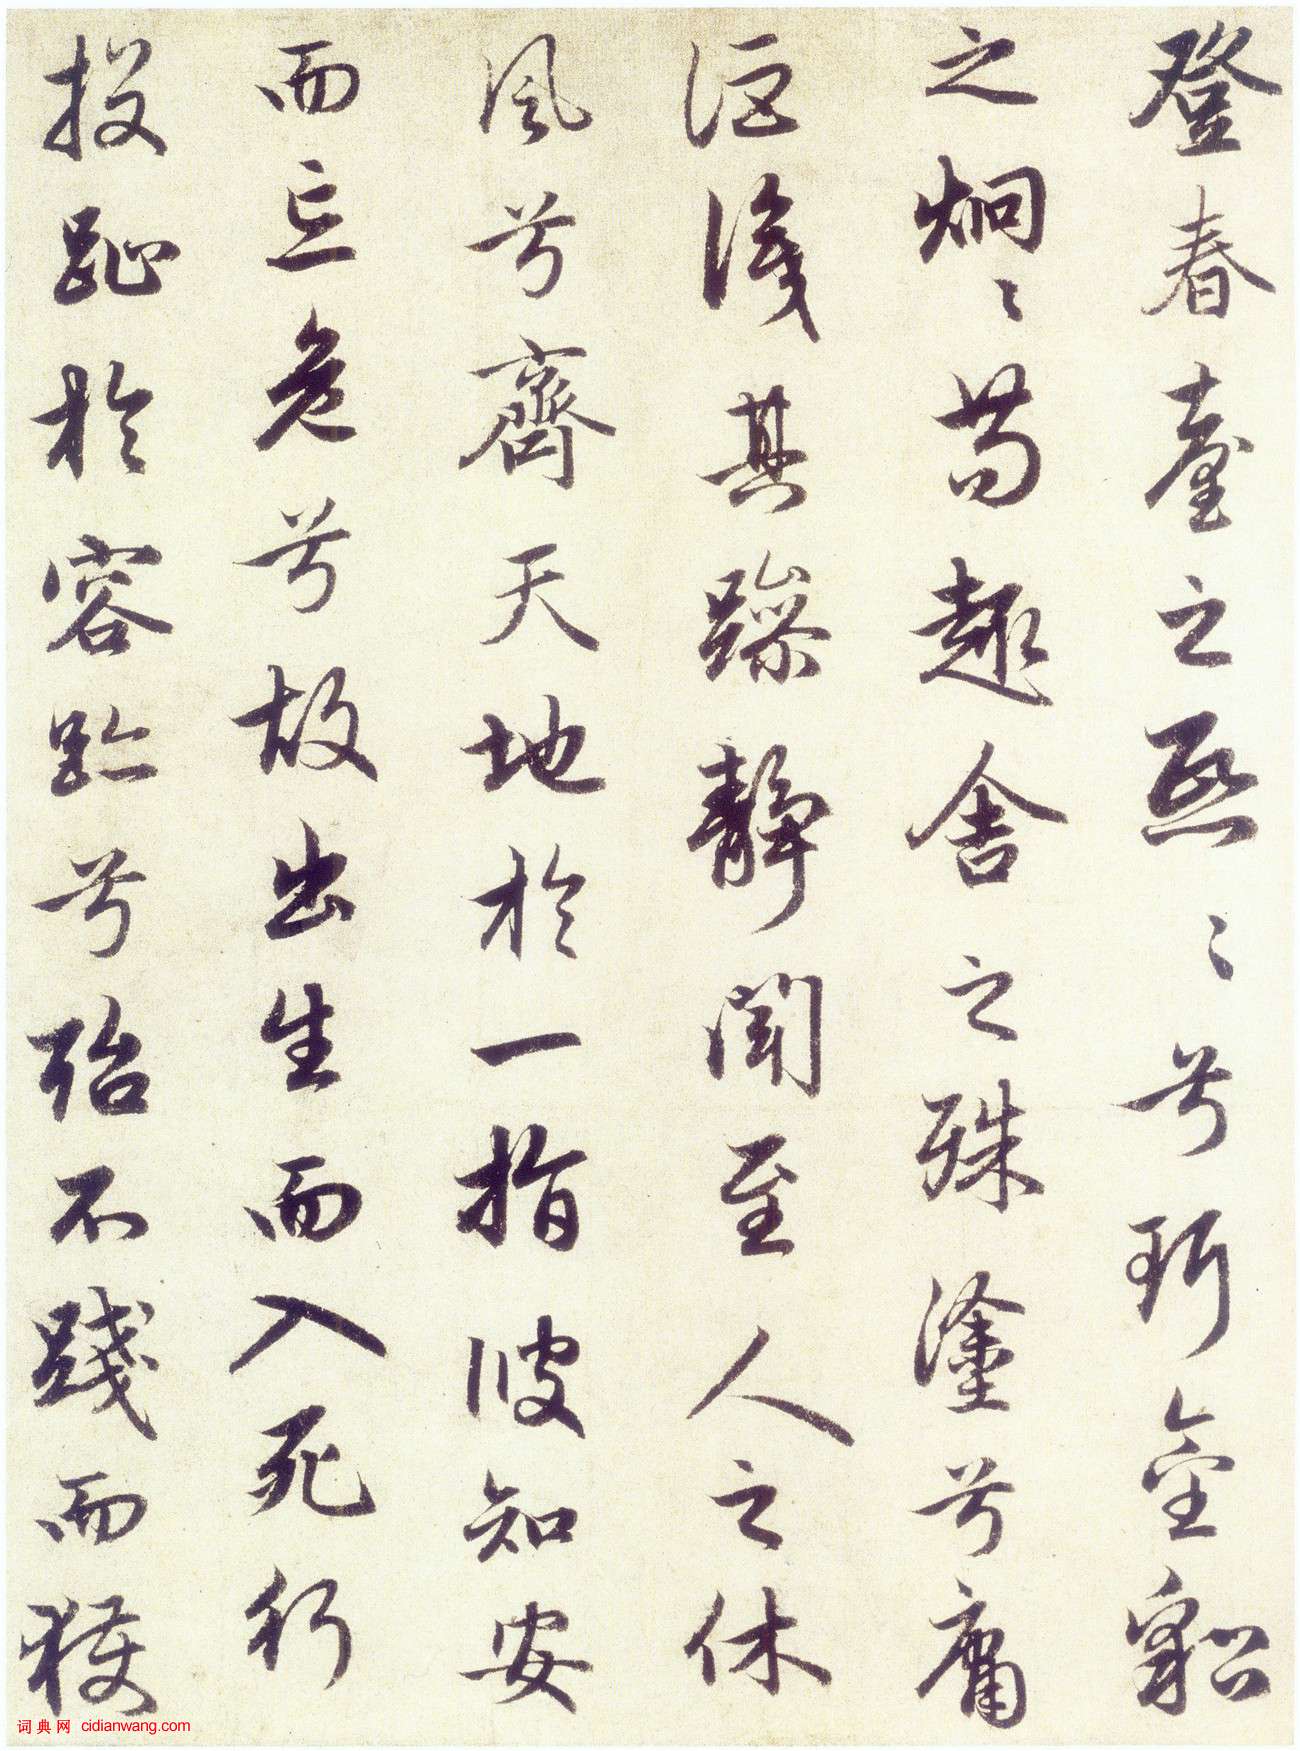 登春臺之熙〻兮珥金貂
之炯〻苟趣舍之殊塗兮庸
詎識其躁靜聞至人之休
風兮齊天地於一指彼知安
而忘危兮故出生而入死行
投趾於容跡兮殆不踐而獲
词典网 cidianwang.com